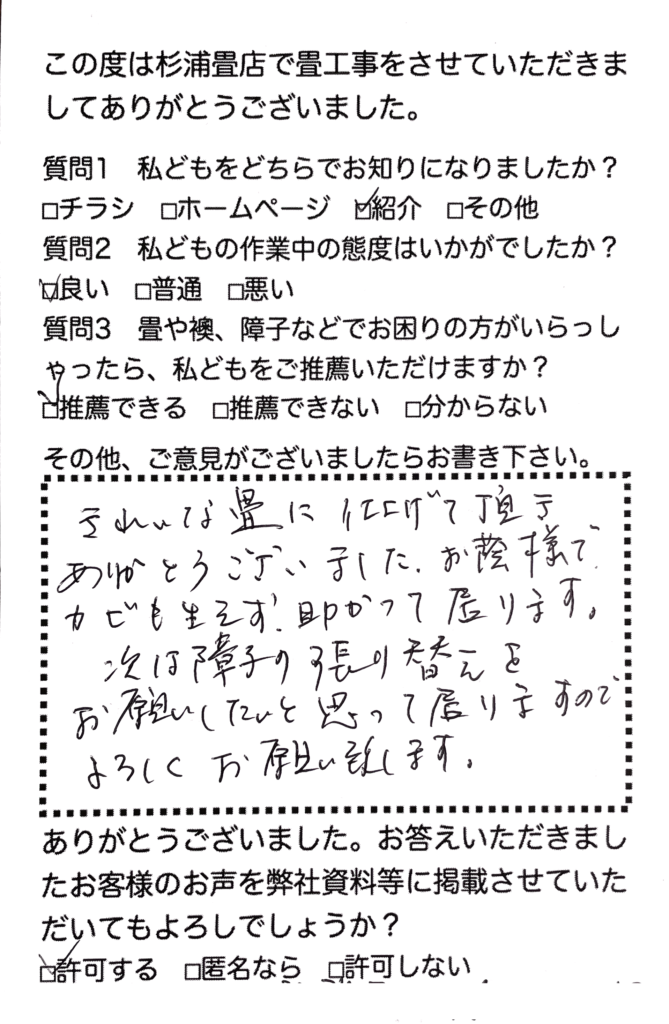 この度は杉浦畳店で畳工事をさせていただきま
してありがとうございました。
質問1 私どもをどちらでお知りになりましたか？
□チラシ □ホームページ ☑紹介 □その他
質問2 私どもの作業中の態度はいかがでしたか？
☑良い □普通 □悪い
質問3 畳や襖、障子などでお困りの方がいらっし
ゃったら、私どもをご推薦いただけますか？
☑推薦できる □推薦できない □分からない
その他、ご意見がございましたらお書き下さい。
きれいな畳に仕上げて頂き
ありがとうございました。お蔭様で
カビも生えず、助かって居ります。
次は障子の張り替えを
お願いしたいと思って居りますので
よろしくお願い致します。
ありがとうございました。お答えいただきまし
たお客様のお声を弊社資料等に掲載させていた
だいてもよろしでしょうか？
☑許可する □匿名なら □許可しない